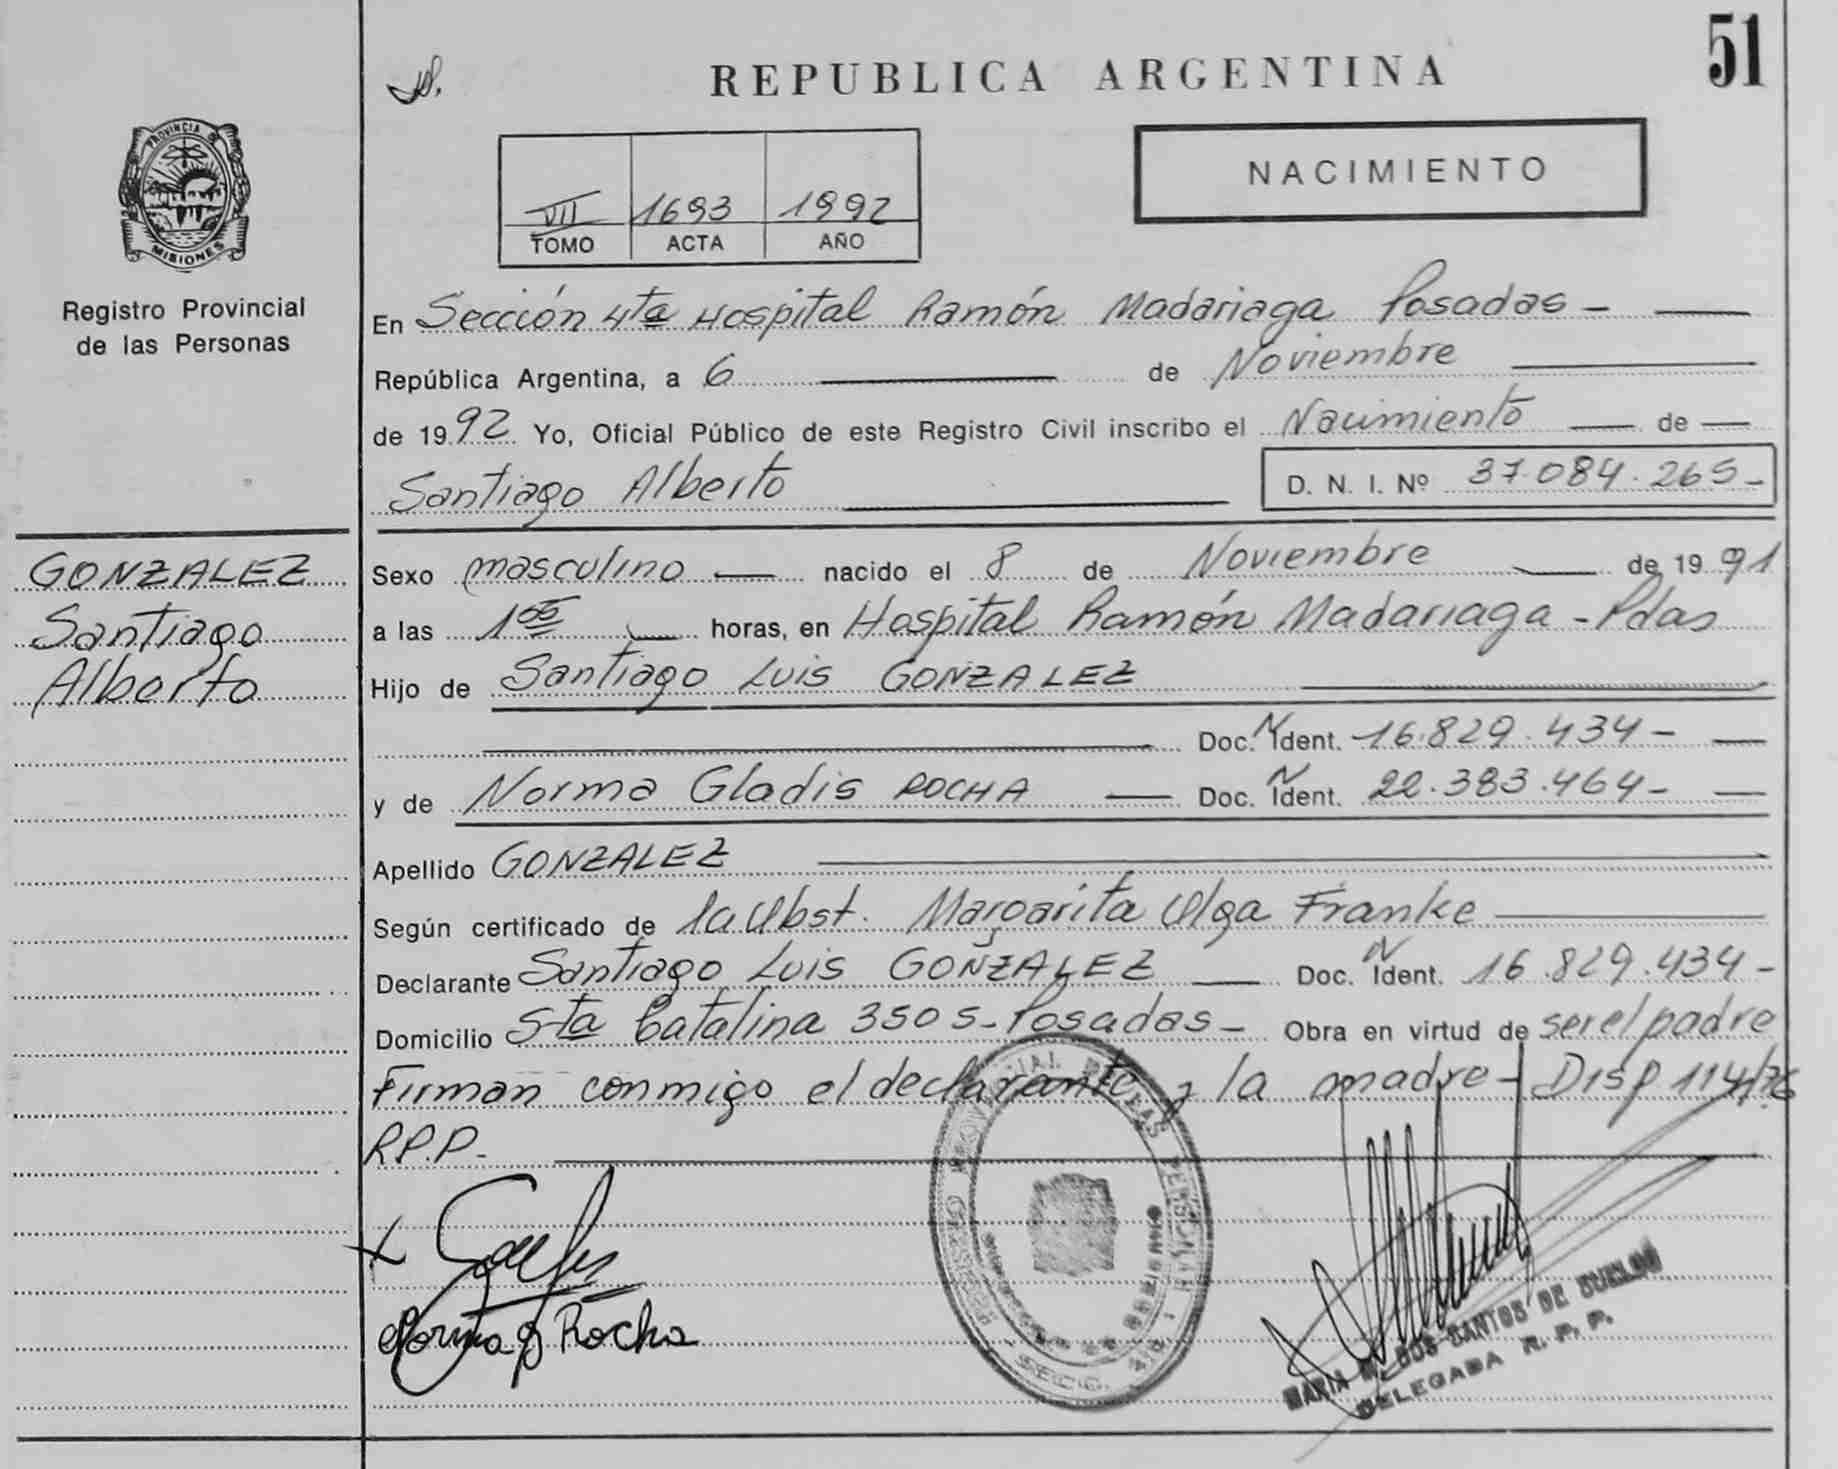 51
REPUBLICA ARGENTINA
NACIMIENTO
VII 1693 1992
TOMO ACTA AÑO
PROVINCIA DE
MISIONES
Registro Provincial
de las Personas
En Sección 4ta Hospital Ramón Madariaga Posadas -
República Argentina, a 6 de Noviembre
de 1992 Yo, Oficial Público de este Registro Civil inscribo el Nacimiento de
Santiago Alberto D. N. I. Nº 37.084.265-
GONZALEZ
Santiago
Alberto
Sexo masculino nacido el 8 de Noviembre de 1991
a las 1 05 horas, en Hospital Ramón Madariaga - Pdas
Hijo de Santiago Luis GONZALEZ
Doc. N Ident. 16.829.434-
y de Norma Gladis ROCHA Doc. N Ident. 22.383.464-
Apellido GONZALEZ
Según certificado de la Obst. Margarita Olga Franke
Declarante Santiago Luis GONZALEZ Doc. N Ident. 16.829.434-
Domicilio Sta Catalina 3505-Posadas- Obra en virtud de ser el padre
Firman conmigo el declarante y la madre- Disp 114/76
R.P.P.-
Norma G Rocha
REGISTRO PROVINCIAL DE LAS PERSONAS
MARIA M. DOS SANTOS DE DUELOS
DELEGADA R. P. P.